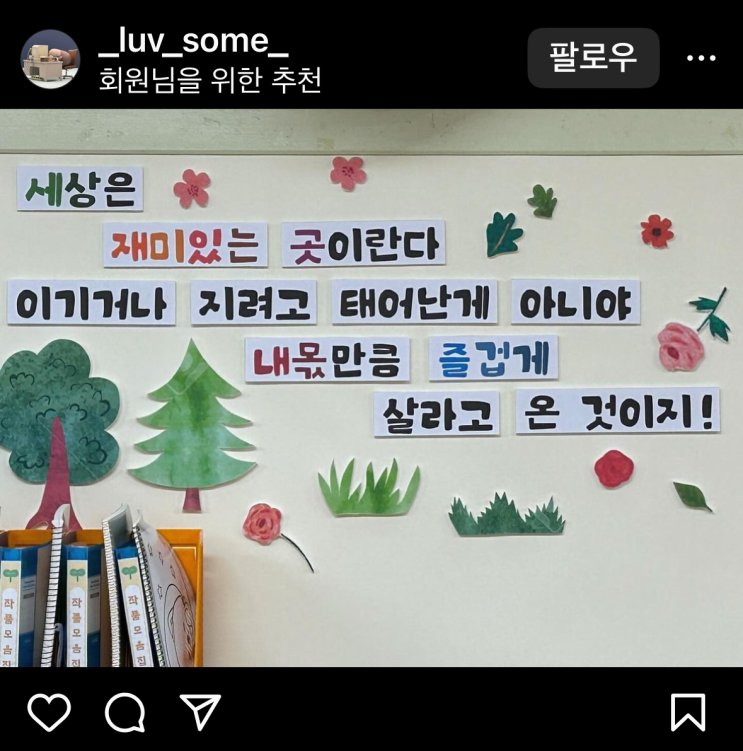 _luv_some_
회원님을 위한 추천
팔로우
세상은
재미있는 곳이란다
이기거나 지려고 태어난게 아니야
내몫만큼 즐겁게
살라고 온 것이지!
작품모음집
작품모음집
작품모음집